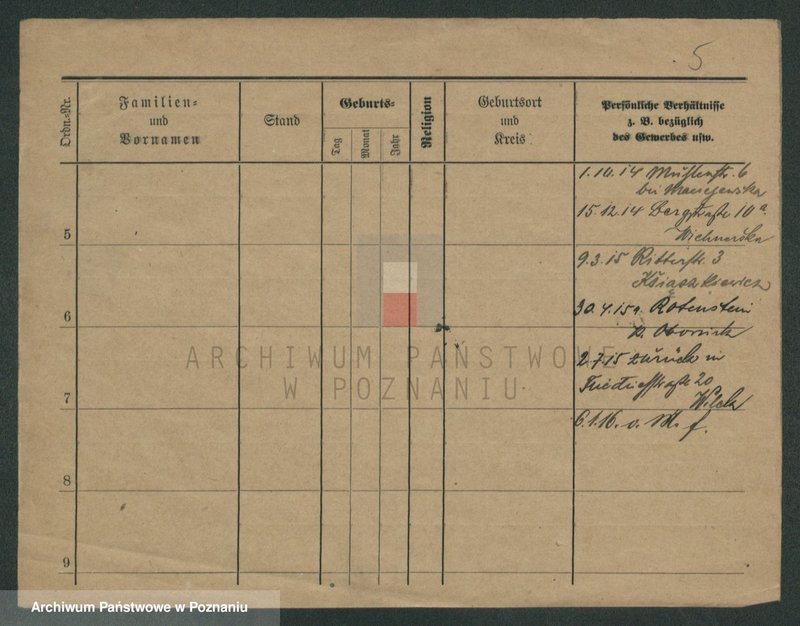 5
Ordn.-Nr.
Familien-
und
Vornamen
Stand
Geburts-
Tag
Monat
Jahr
Religion
Geburtsort
und
Kreis
Persönliche Verhältnisse
z. B. bezüglich
des Gewerbes usw.
1.10.14 Mühlenstr. 6
bei Maciejewska
15.12.14 Bergstraße 10a.
5
9.3.15 Ritterstr. 3
Książkiewicz
30.4.15 n. Rotenstein
6
Obornik
2.7.15 zurück in
Friedrichstraße 20
7
6.1.16. v. M.
8
9
ARCHIWUM PAŃSTWOWE
W POZNANIU
Archiwum Państwowe w Poznaniu